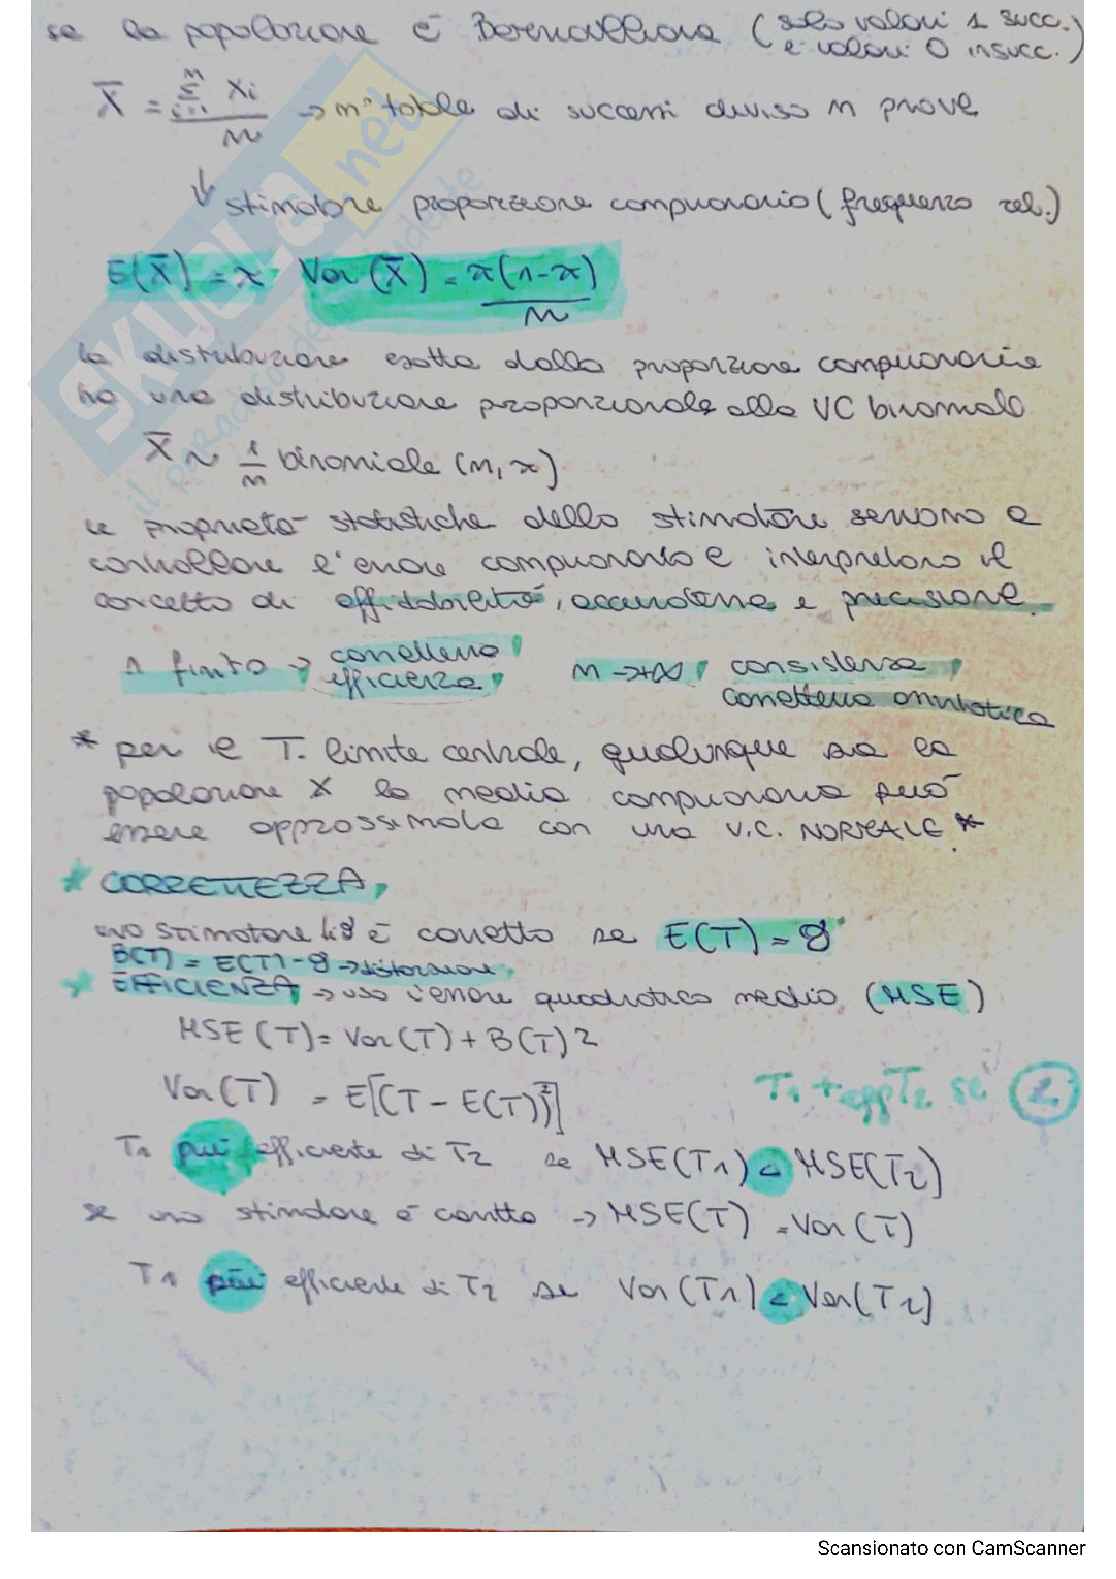 se la popolazione è Bernoulliana (solo valori 1 succ.
e valori 0 insucc.)
X̄ = Σ xi / n → n° totale di successi diviso n prove
i=1
↓ stimatore proporzione campionaria (frequenza rel.)
E(X̄) = π Var(X̄) = π(1-π) / n
la distribuzione esatta della proporzione campionaria
ha una distribuzione proporzionale alla VC binomiale
X̄ ~ 1/n binomiale (n, π)
le proprietà statistiche dello stimatore servono a
controllare l'errore campionario e interpretare il
concetto di affidabilità, accuratezza e precisione.
n finito → correttezza
efficienza
n→+∞ consistenza
correttezza asintotica
* per il T. limite centrale, qualunque sia la
popolazione X la media campionaria può
essere approssimata con una V.C. NORMALE.*
* CORRETTEZZA
uno stimatore di θ è corretto se E(T) = θ
B(T) = E(T) - θ → distorsione
EFFICIENZA → uso l'errore quadratico medio (MSE)
MSE(T) = Var(T) + B(T)²
Var(T) = E[(T - E(T))²]
T1 + eff T2 se
T1 più efficiente di T2 se MSE(T1) < MSE(T2)
se uno stimatore è corretto → MSE(T) = Var(T)
T1 più efficiente di T2 se Var(T1) < Var(T2)
SKUOLA.net
Scansionato con CamScanner